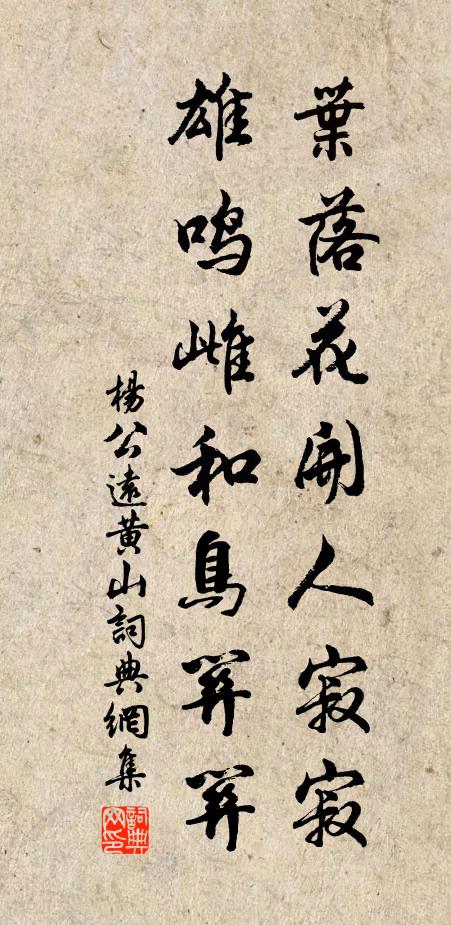 葉落花開人寂寂
雄鳴雌和鳥關關
楊公遠黃山詞典網集
詞典網印